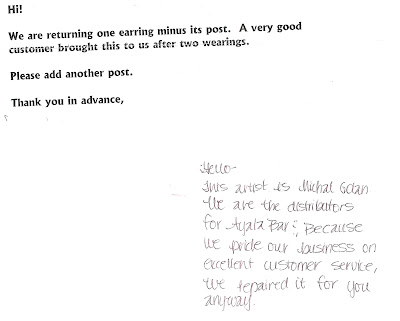 Hi!
We are returning one earring minus its post. A very good
customer brought this to us after two wearings.
Please add another post.
Thank you in advance,
Hello-
This artist is Michal Golan
We are the distributors
for Ayala Bar; Because
we pride our business on
excellent customer service,
we repaired it for you
anyway.